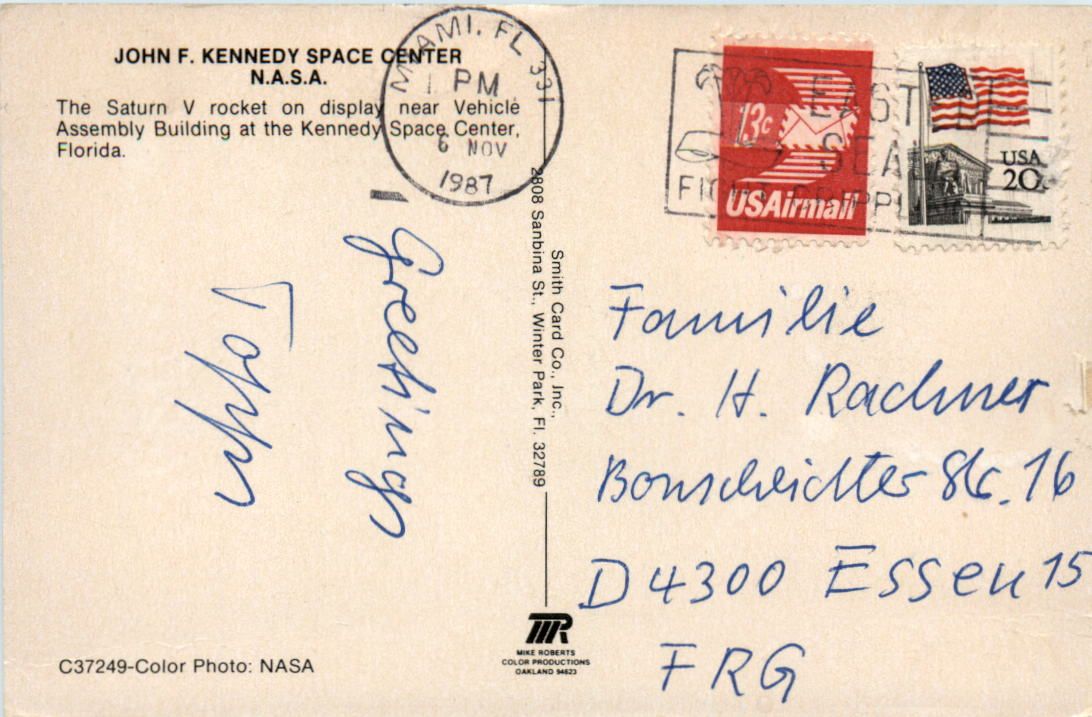 JOHN F. KENNEDY SPACE CENTER
N.A.S.A.
The Saturn V rocket on display near Vehicle
Assembly Building at the Kennedy Space Center,
Florida.
MIAMI, FL 331
PM
6 NOV
1987
EAST
SEAL
FIGHT CRIPPL
13c
USAirmail
USA
20c
Greetings
Smith Card Co., Inc.,
2808 Sanbina St., Winter Park, Fl. 32789
Familie
Dr. H. Rachner
Str. 16
D 4300 Essen 15
FRG
MR
MIKE ROBERTS
COLOR PRODUCTIONS
OAKLAND 94623
C37249-Color Photo: NASA